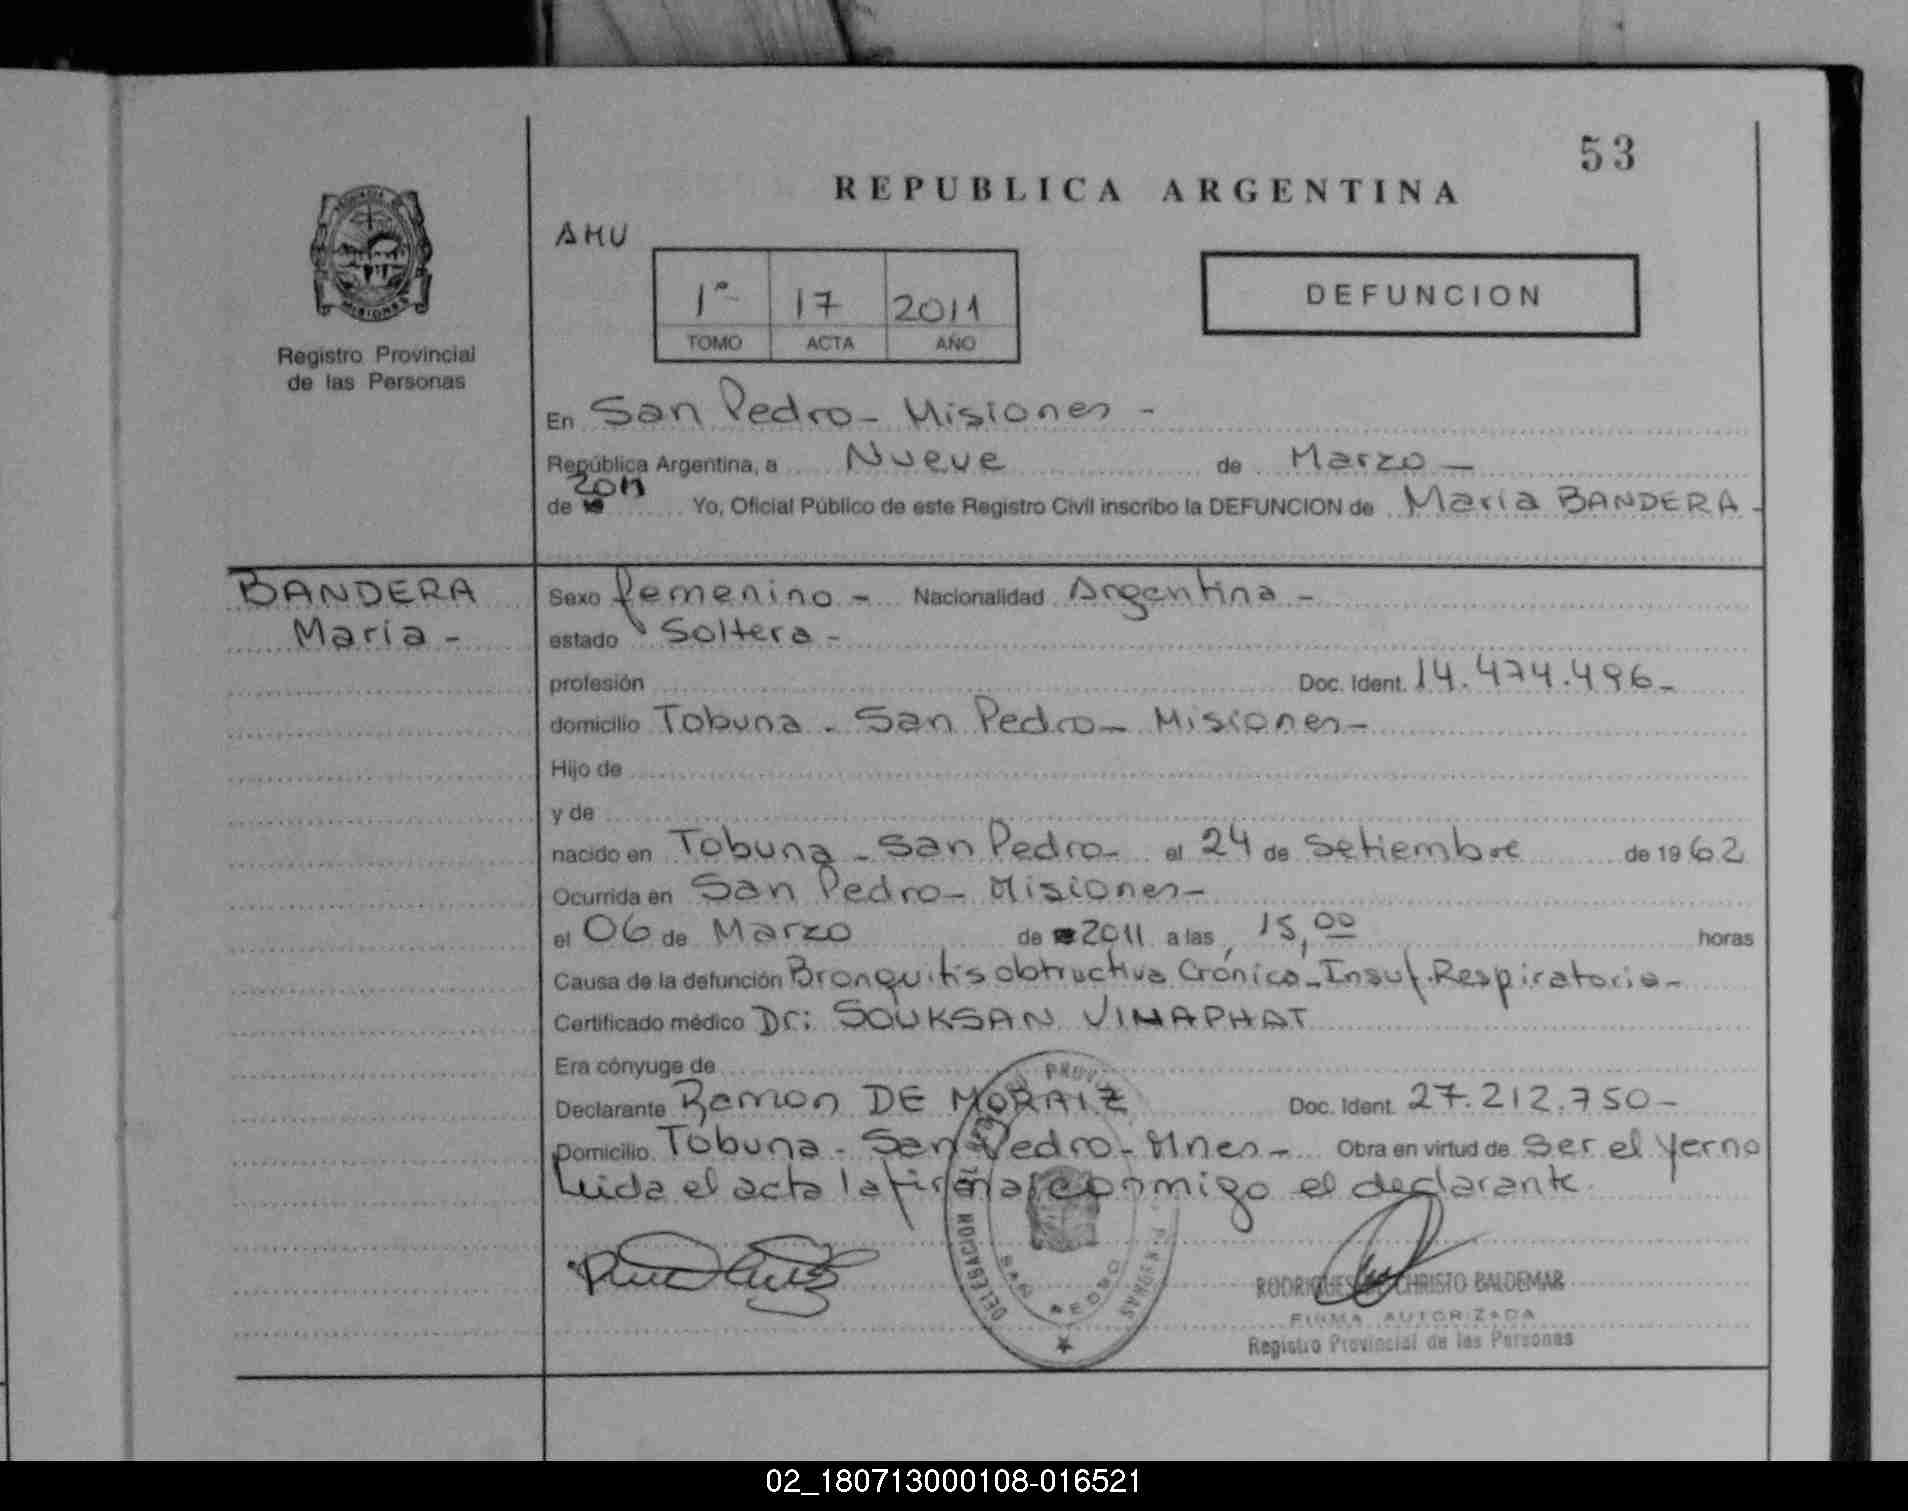 53
REPUBLICA ARGENTINA
AMU
1º 17 2011
TOMO ACTA AÑO
DEFUNCION
MISIONES
Registro Provincial
de las Personas
En San Pedro - Misiones -
República Argentina, a Nueve de Marzo -
de 2011 Yo, Oficial Público de este Registro Civil inscribo la DEFUNCION de Maria BANDERA -
BANDERA
Maria -
Sexo femenino - Nacionalidad Argentina -
estado Soltera -
profesión Doc. Ident. 14.474.496 -
domicilio Tobuna - San Pedro - Misiones -
Hijo de
y de
nacido en Tobuna - San Pedro - el 24 de Setiembre de 1962
Ocurrida en San Pedro - Misiones -
el 06 de Marzo de 2011 a las 15,00 horas
Causa de la defunción Bronquitis obtructiva Crónica - Insuf. Respiratoria -
Certificado médico Dr: SOUKSAN VINAPHAT
Era cónyuge de
Declarante Ramon DE MORAIZ Doc. Ident. 27.212.750 -
Domicilio Tobuna - San Pedro - Mnes - Obra en virtud de Ser el yerno
Leida el acta la firma conmigo el declarante
DELEGACION SAN PEDRO PERSONAS
RODRIGUES CHRISTO BALDEMAR
FIRMA AUTORIZADA
Registro Provincial de las Personas
02_180713000108-016521